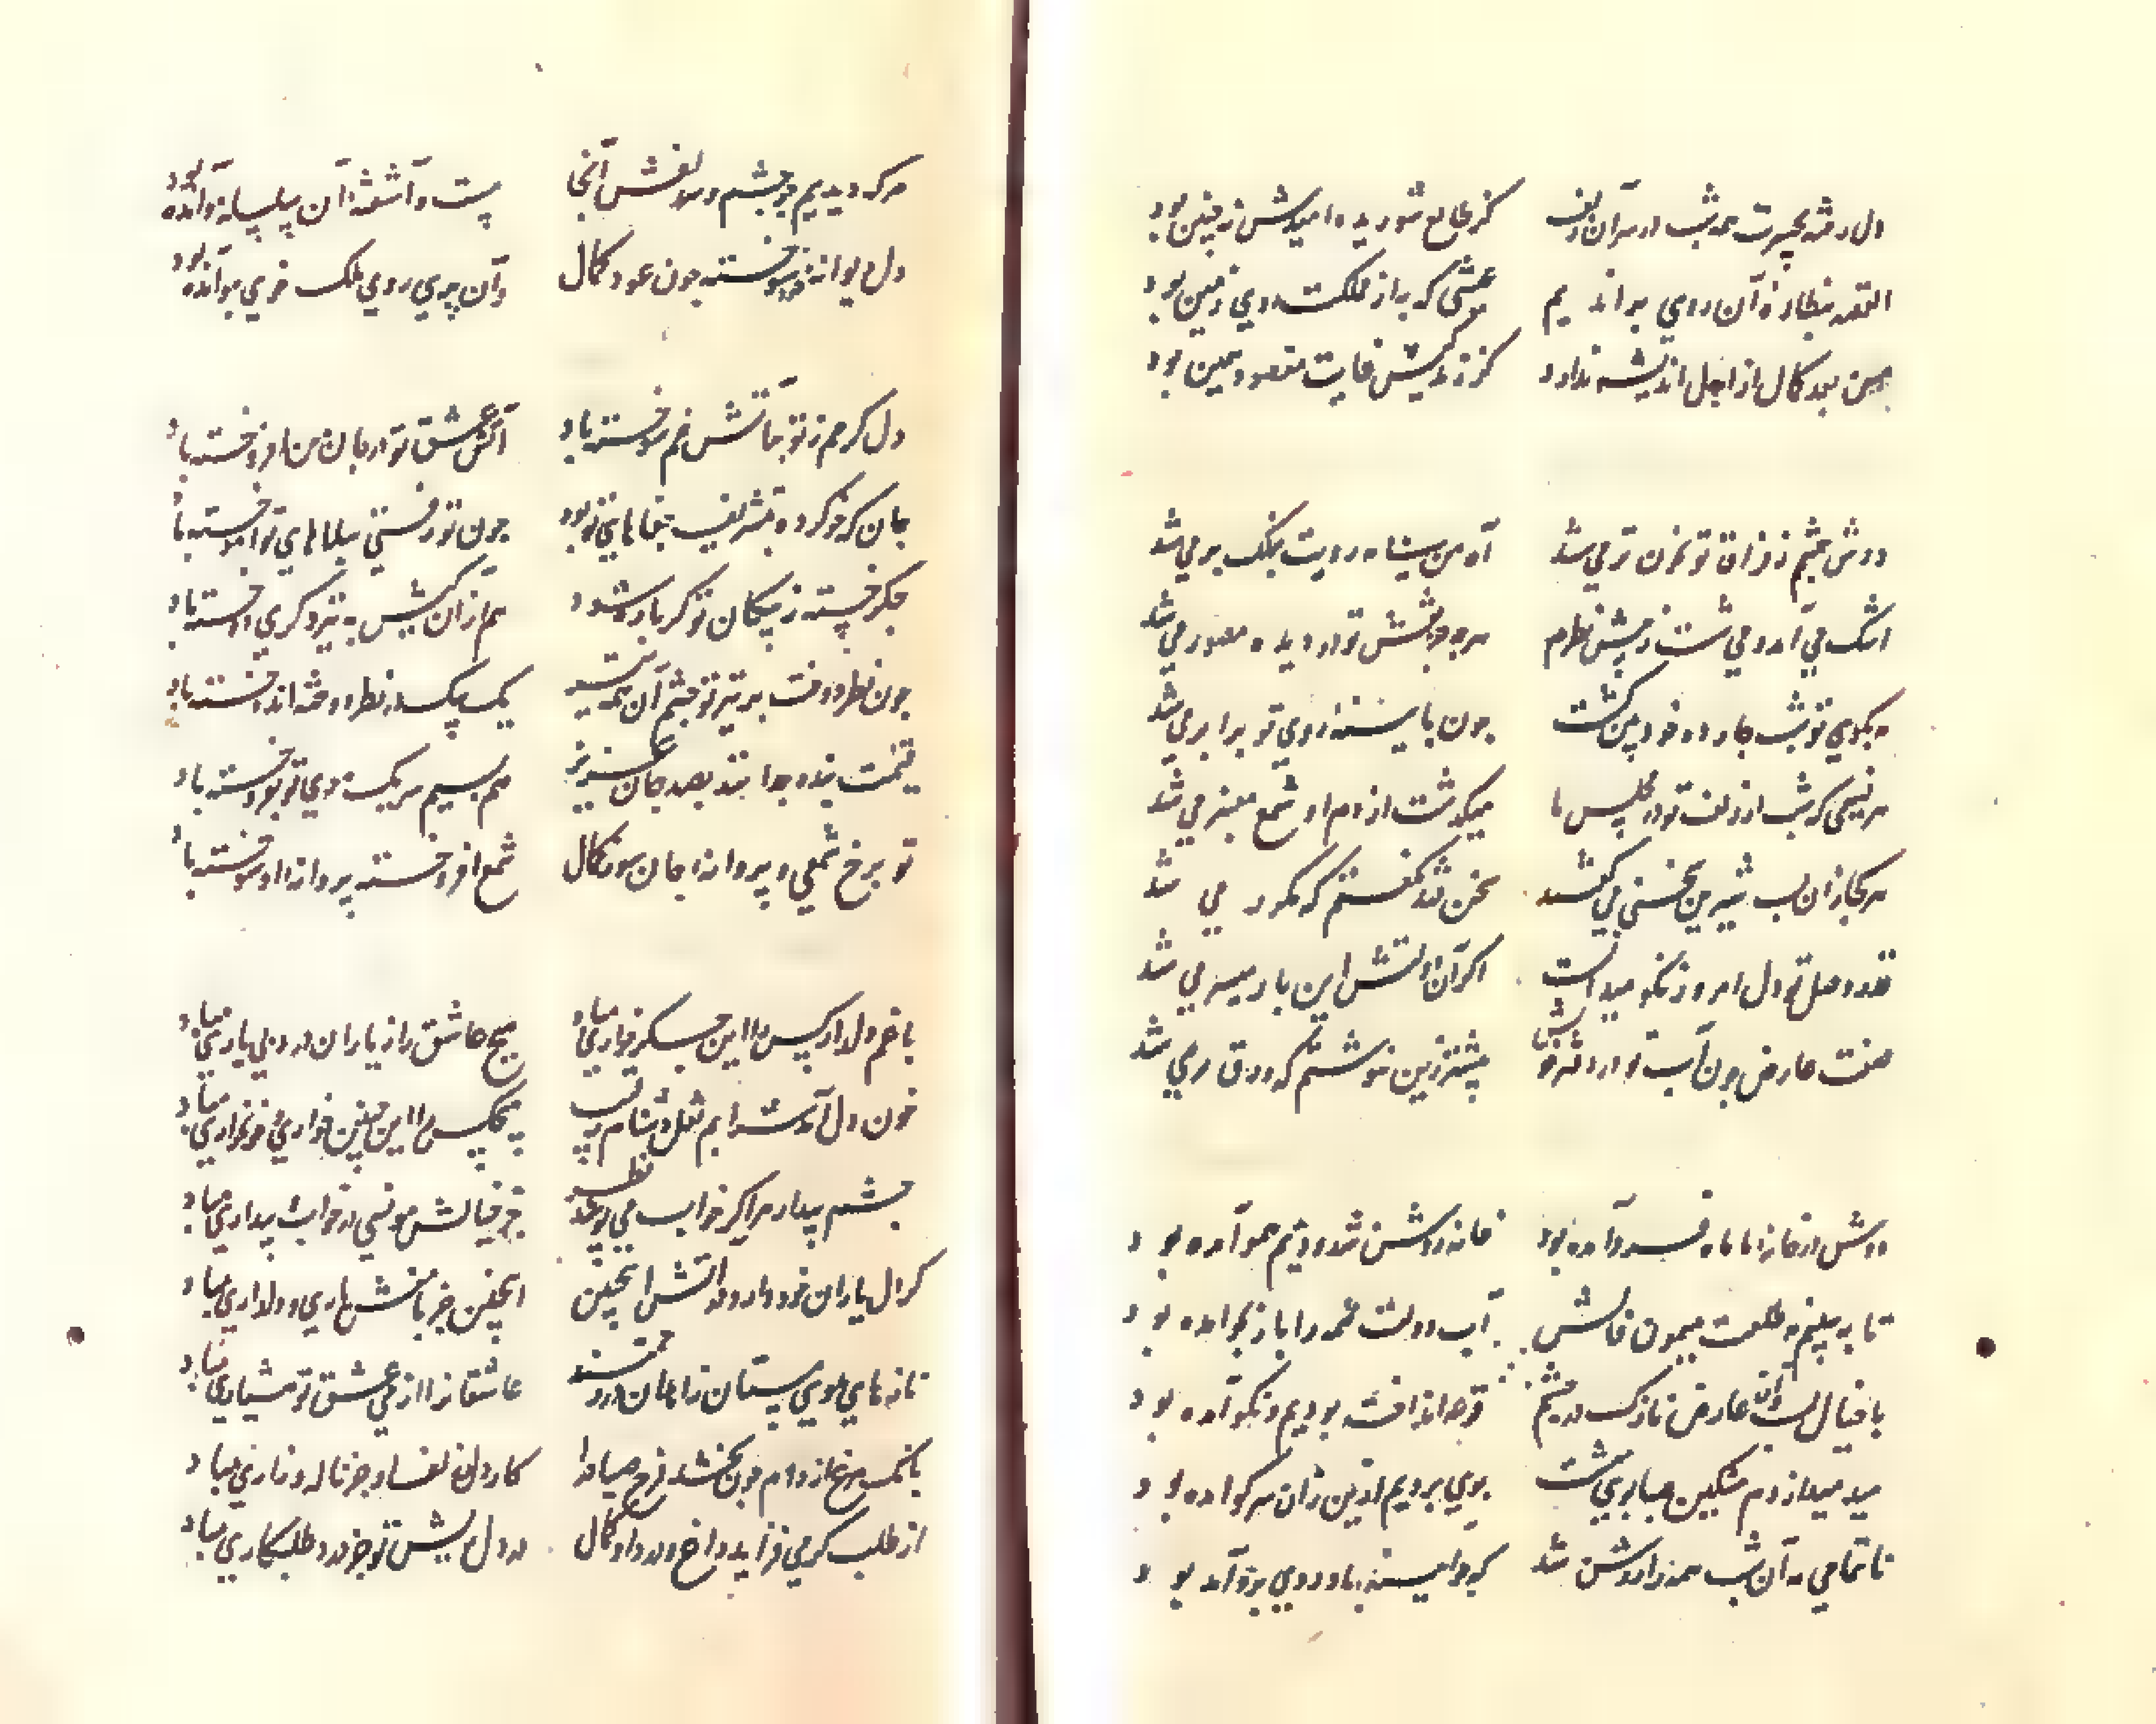 دل رفته بحیرت همه شب در سر آن زلف کز طالع شوریده امیدش نه چنین بود
القصه بنظاره آن روی براندیم عشقی که به از مملکت روی زمین بود
من بعد کمال از اجل اندیشه ندارد کز زندگیش غایت مقصود همین بود
دوش چشمم ز فراق تو بخون تر می شد آه من بی مه رویت بفلک بر می شد
اشک می آمد و می شست ز پیش نظرم هرچه جز نقش تو در دیده مصور می شد
مه بکوی تو شب چارده خود بین گشت چون بآیینه روی تو برابر می شد
هر نسیمی که شب از زلف تو در مجلس ما میگذشت از دم او شمع معنبر می شد
هر کجا زان لب شیرین سخنی می گفتند سخن قند نگفتم که مکرر می شد
قدر وصل تو دل امروز نکو میدانست اگر آن دولتش این بار میسر می شد
صفت عارض چون آب تو در دفتر خویش پیشتر زین ننوشتم که ورق تر می شد
دوش در خانه ما ماه فرود آمده بود خانه روشن شد و دیدیم همو آمده بود
تا به بینیم مه طلعت میمون فالش آب دولت همه را باز بجو آمده بود
با خیال لب و آن عارض نازک در چشم قرعه انداخته بودیم و نکو آمده بود
میدمید از دم مشکین صبا بوی بهشت بوی بردیم کزین زان سر کو آمده بود
تا تمامی مه آن شب همه را روشن شد که چو آیینه با و روی برو آمده بود
هر که دیدیم چو چشم و سر زلفش آنجا مست و آشفته آن سلسله مو آمده بود
دل دیوانه خود سوخته چون عود کمال وان پری روی ملک خوی ببو آمده بود
دل گرمم ز تو بر آتش غم سوخته باد آتش عشق تو در جان من افروخته باد
جان که خو کرده بتشریف جفاهای تو بود چون تو رفتی ببلاهای تو آموخته باد
جگر خسته ز پیکان تو گر باره شود هم از آن کیش به تیر دگری دوخته باد
چون نظر دوخت بر تیر تو چشم یک بیک در نظر دوخته اندوخته باد
قیمت بنده چو دانند بصد جان عزیز هم بسیم سر یک موی تو بفروخته باد
تو برخ شمعی و پروانه جان سوز کمال شمع افروخته پروانه او سوخته باد
با غم دلدار کس را این جگر خواری مباد هیچ عاشق را ز یاران درد بی یاری مباد
خون دل آمد شرابم نقل دشنام رقیب هیچکس را این چنین خواری و خونخواری مباد
چشم بیدار مرا گر خواب می جوید نظر جز خیالش مونسی در خواب و بیداری مباد
گر دل یاران خود دارد دلاتش اینچنین اینچنین جز با منش یاری و دلداری مباد
تا نه های و هوی مستان زاهدان درد سرند عاشقان را از می عشق تو هشیاری مباد
بانگ مرغ از دام چون بخشد فرح صیاد را کار دل زان زلف او جز ناله و زاری مباد
از طلب گرمی فزاید داغ و درد او کمال در دل ریش تو جز درد طلبکاری مباد